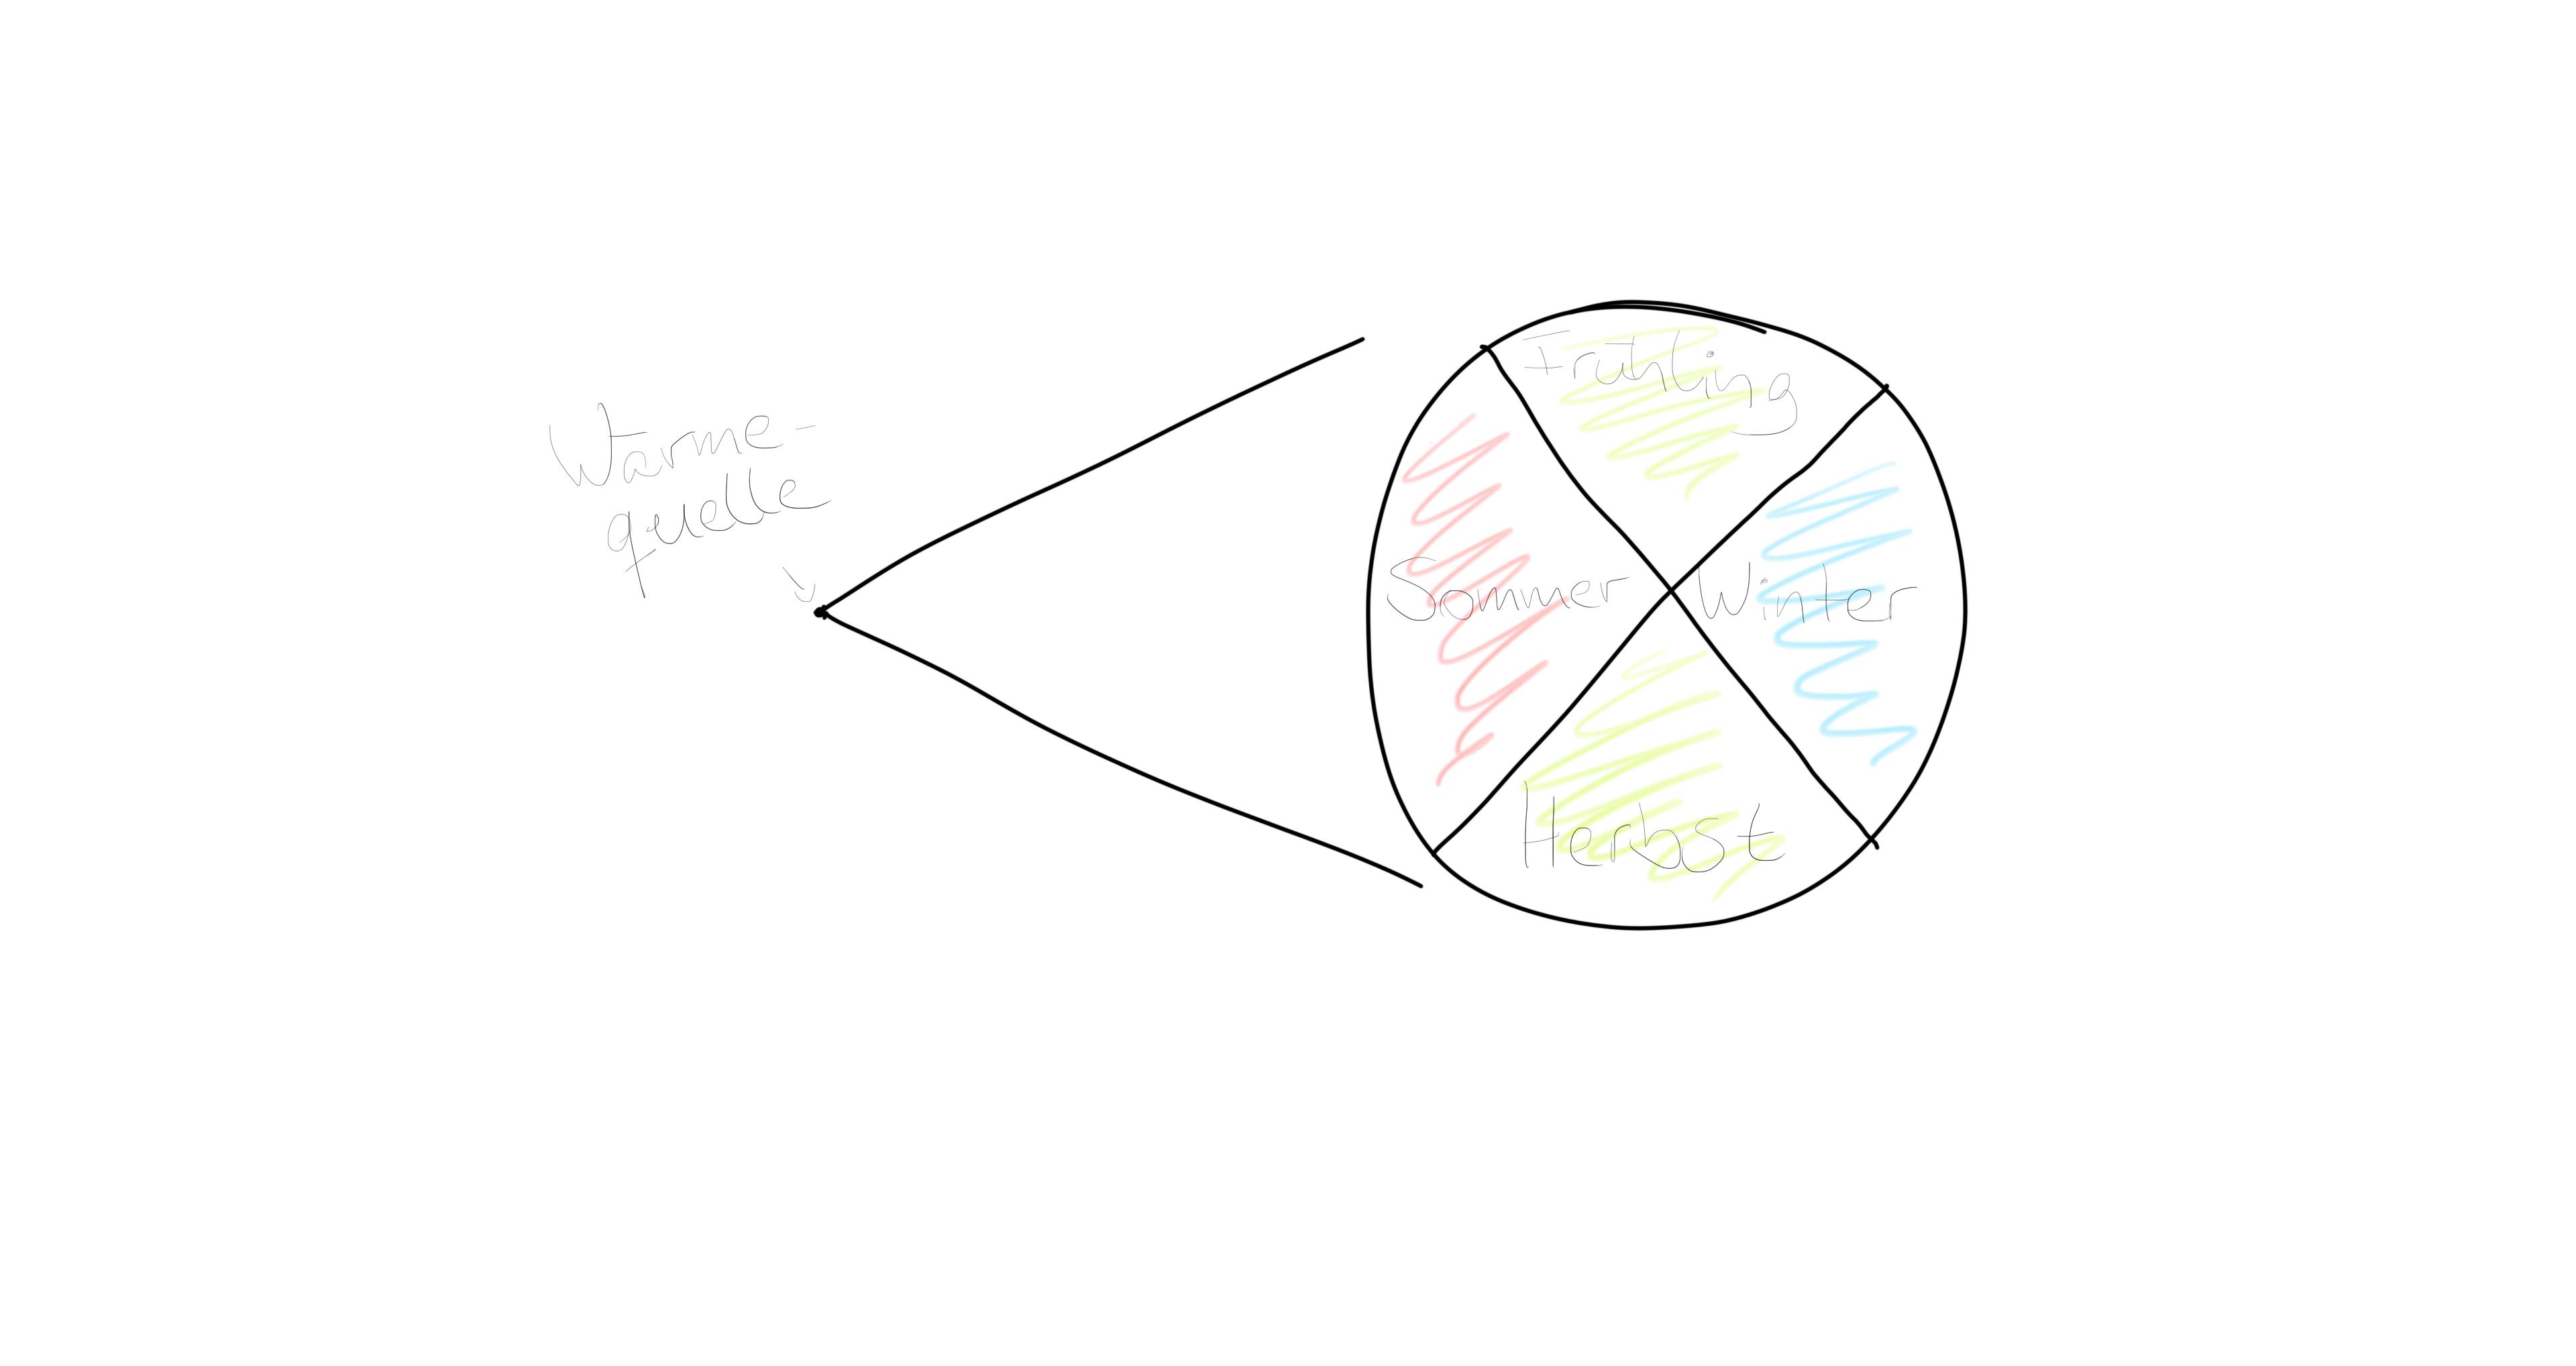 Wärme-
quelle
Frühling
Sommer
Winter
Herbst